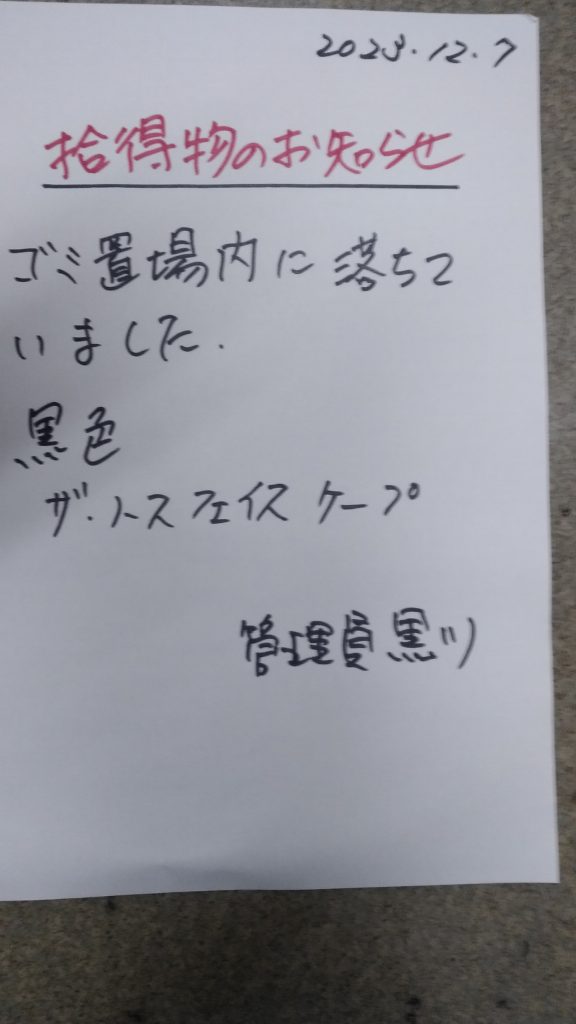 2023.12.7
拾得物のお知らせ
ゴミ置場内に落ちて
いました.
黒色
ザ・ノースフェイス ケープ
管理員 黒川